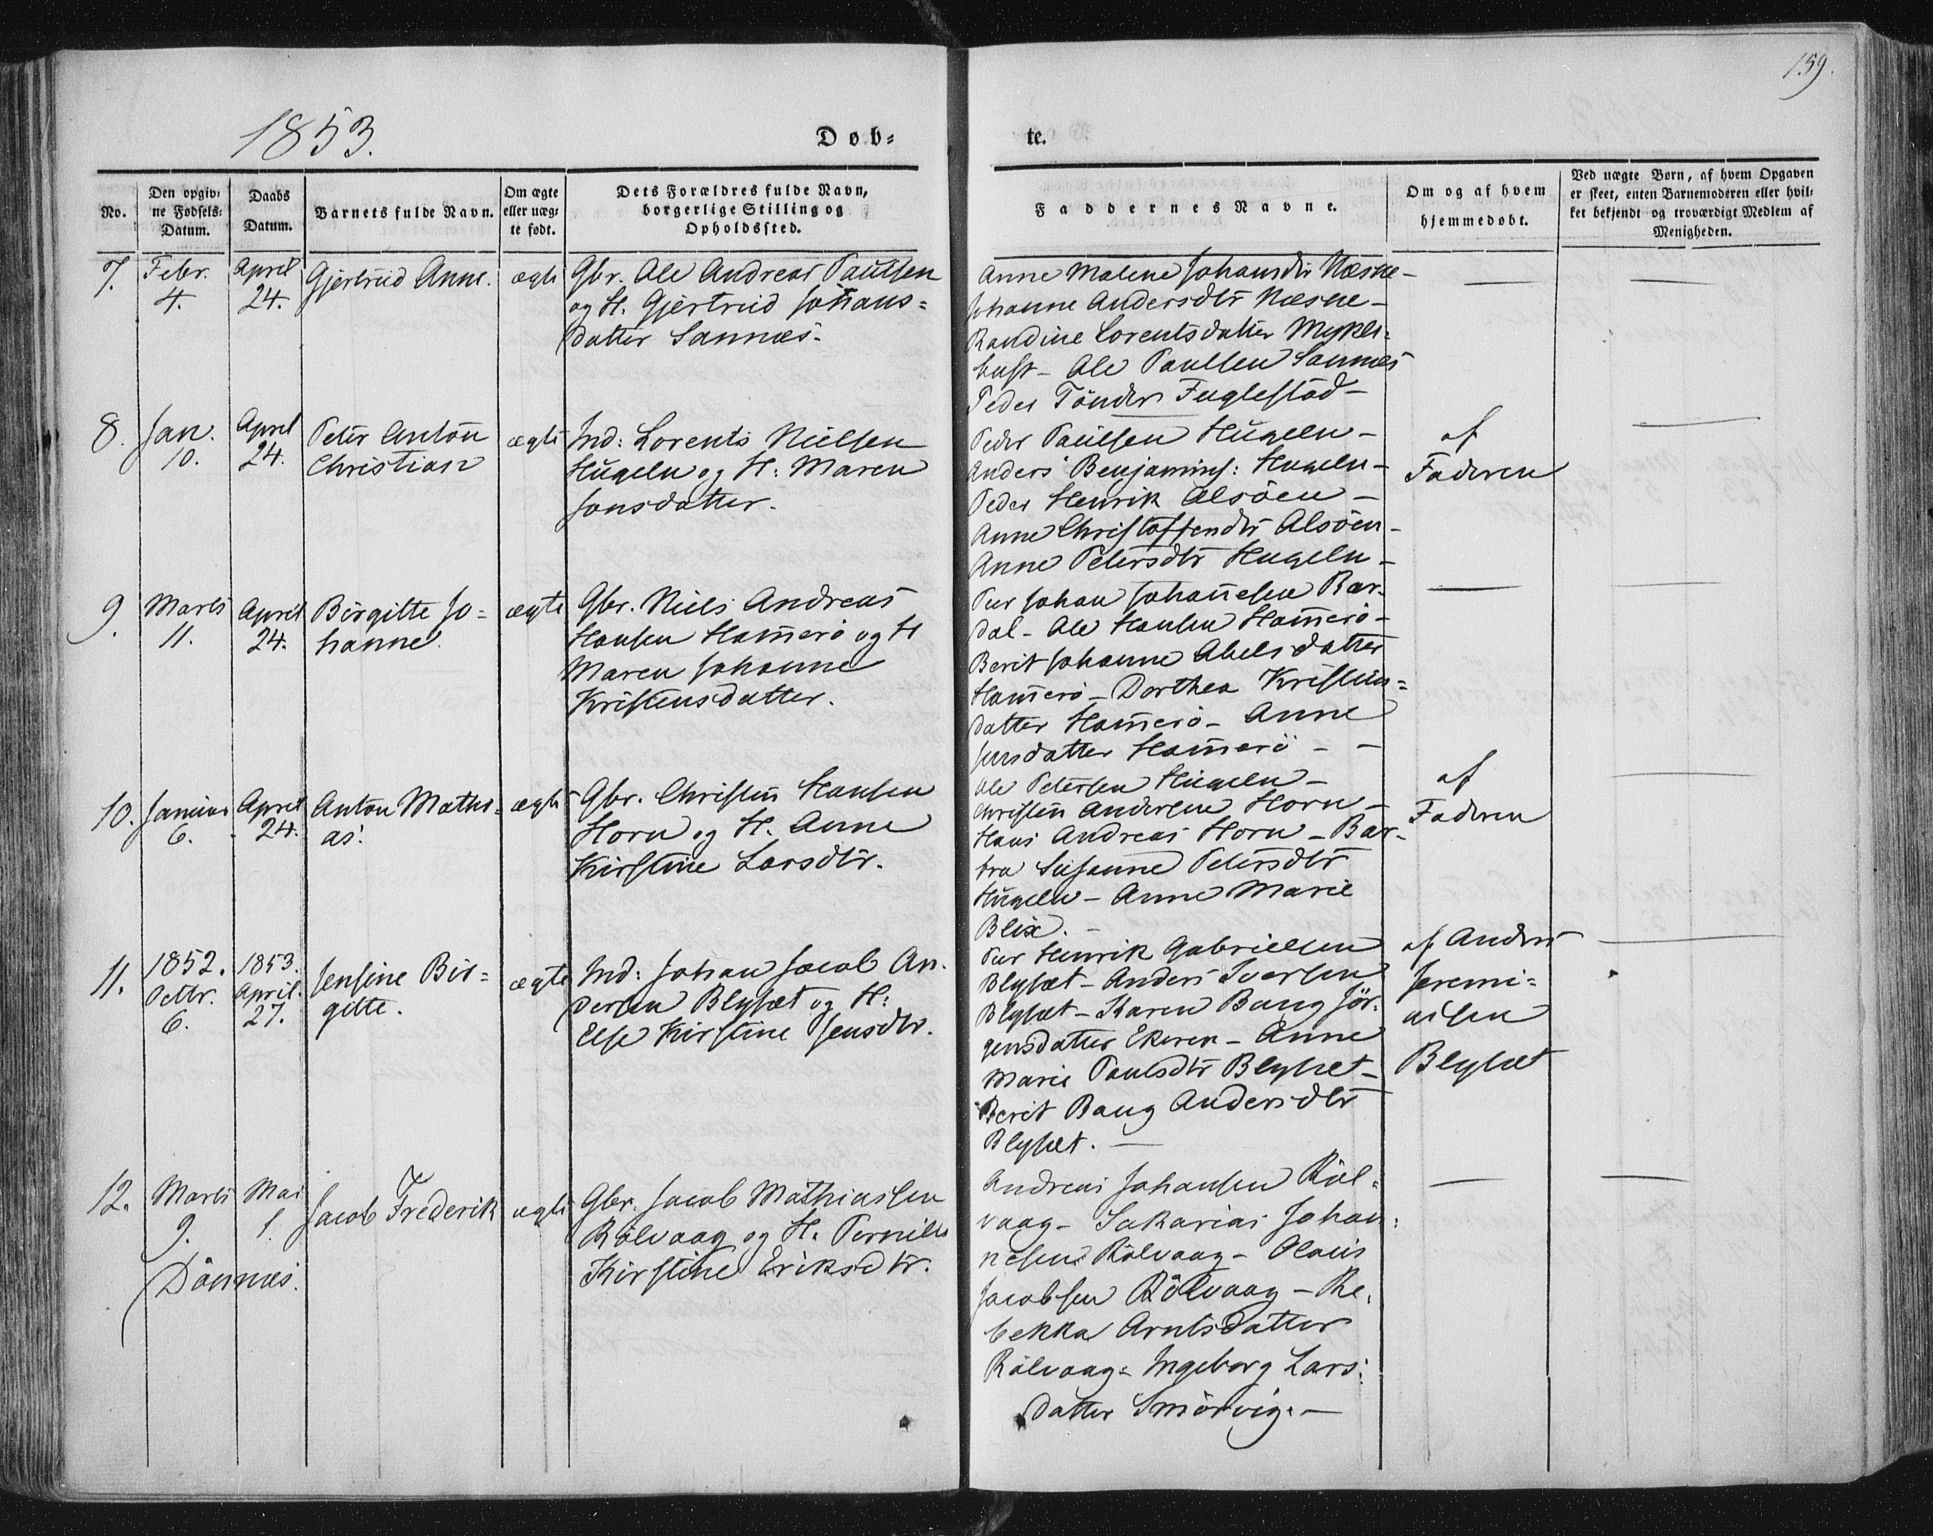 159.
1853.
Døb=
te.
No.
Den opgiv=
ne Fødsels=
Datum.
Daabs
Datum.
Barnets fulde Navn.
Om ægte
eller uæg=
te født.
Dets Forældres fulde Navn,
borgerlige Stilling og
Opholdssted.
Faddernes Navne.
Om og af hvem
hjemmedøbt.
Ved uægte Børn, af hvem Opgaven
er skeet, enten Barnemoderen eller hvil=
ket bekjendt og troværdigt Medlem af
Menigheden.
7.
Febr.
4.
April
24.
Gjertrud Anne.
ægte
Gbr. Ole Andreas Paulsen
og H. Gjertrud Johans=
datter Sannæs.
Anne Malene Johansdtr Næsne –
Johanne Andersdtr Næsne –
Randine Lorentsdatter Mykle=
bust – Ole Paulsen Sannæs
Peder Tønder Fuglestad –
8.
Jan.
10.
April
24.
Peter Anton
Christian
ægte
Ind: Lorents Nielsen
Hugeln og H: Maren
Jonsdatter.
Peder Paulsen Hugeln –
Anders Benjamins: Hugeln –
Peder Henrik Alsöen –
Anne Christoffersdtr Alsöen –
Anne Petersdtr Hugeln –
af
Faderen
9.
Marts
11.
April
24.
Birgitte Jo=
hanne.
ægte
Gbr. Niels Andreas
Hansen Hamerö og H
Maren Johanne
Kristensdatter.
Per Johan Johannesen Bar=
dal – Ole Hansen Hamerö –
Berit Johanne Abelsdatter
Hamerö – Dorthea Kristens=
datter Hamerö – Anne
Jensdatter Hamerö – –
10.
Januar
6.
April
24.
Anton Mathi=
as.
ægte
Gbr. Christen Hansen
Horn og H. Anne
Kirstine Larsdtr.
Ole Petersen Hugeln –
Christen Andersen Horn –
Hans Andreas Horn – Bar=
bra Susanne Petersdtr
Hugeln – Anne Marie
Blix. –
af
Faderen
11.
1852.
Octbr.
6.
1853.
April.
27.
Jensine Bir=
gitte.
ægte
Ind: Johan Jacob An=
dersen Blysæt og H:
Else Kirstine Jensdtr.
Per Henrik Gabrielsen
Blysæt – Anders Iversen
Blysæt – Karen Bang Jör=
gensdatter Ekeren – Anne
Marie Paulsdtr Blysæt –
Berit Bang Andersdtr
Blysæt. –
af Anders
Jeremi=
asen
Blysæt
12.
Marts
9.
Mai
1.
Dønnæs.
Jacob Frederik
ægte
Gbr. Jacob Mathiassen
Rölvaag og H. Pernille
Kirstine Eriksdtr.
Andreas Johansen Röl=
vaag – Sakarias Johan=
nesen Rölvaag – Olaus
Jacobsen Rölvaag – Re=
bekka Arntsdatter
Rölvaag – Ingeborg Lars=
datter Smörvig. –